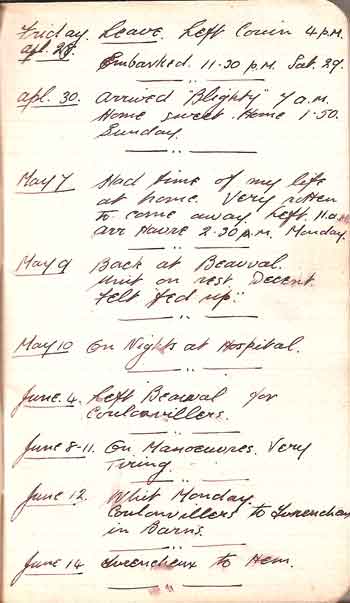 Friday. Leave. Left Couin 4 p.m.
Apl. 28. Embarked. 11.30 p.m. Sat. 29.
Apl. 30. Arrived "Blighty" 7 a.m.
Home sweet Home 1.50.
Sunday.
May 7 Had time of my life
at home. Very rotten
to come away. Left. 11 a.m.
arr Havre 2.30 p.m. Monday.
May 9 Back at Beauval.
Unit on rest. Decent.
Felt "fed up".
May 10 On Nights at Hospital.
June. 4. Left Beauval for
Coulonvillers.
June 8-11. On Manoeuvres. Very
Tiring.
June 12. Whit Monday.
Coulonvillers to Outrebois
in Barns.